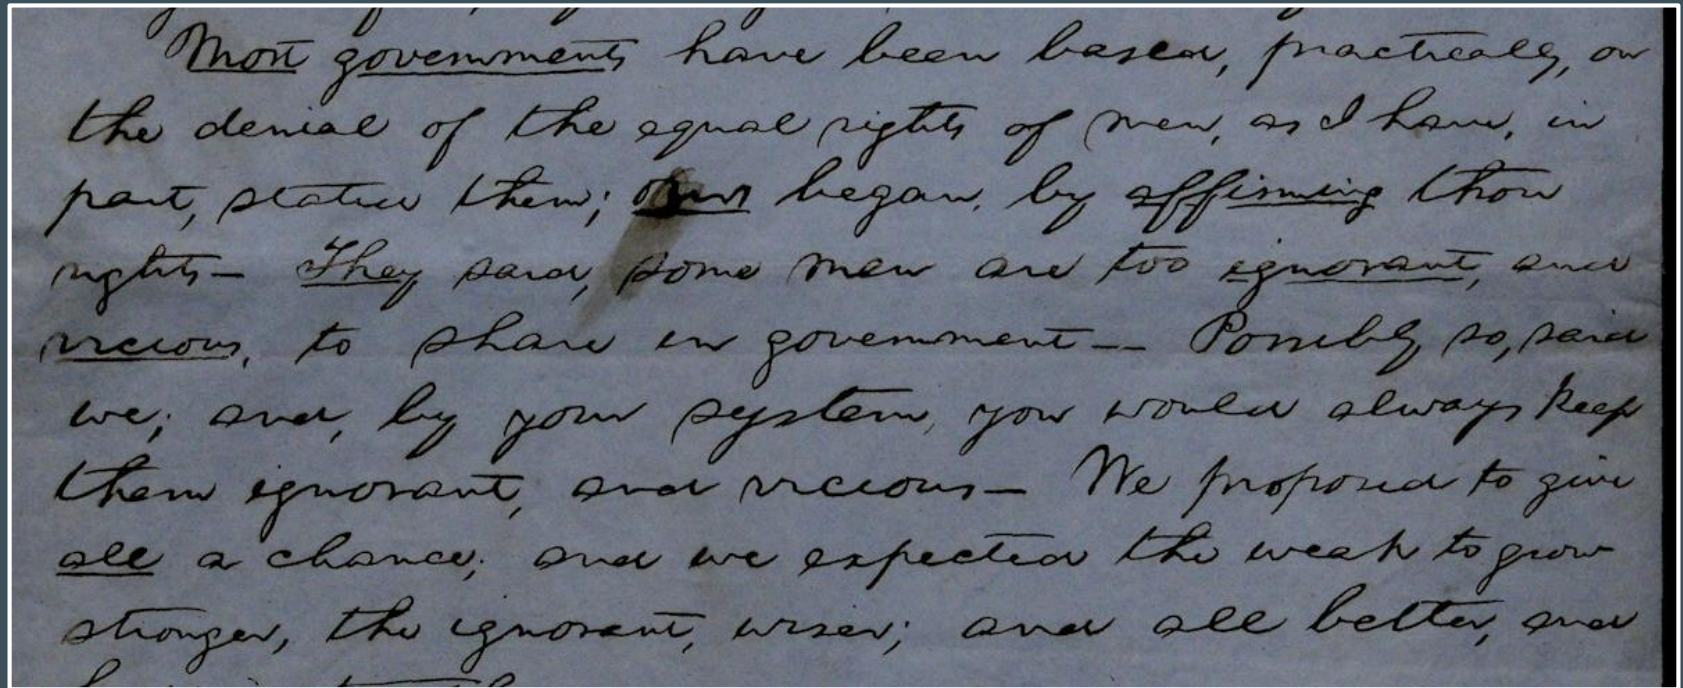 Most governments have been based, practically, on
the denial of the equal rights of men, as I have, in
part, stated them; ours began, by affirming those
rights— They said, some men are too ignorant, and
vicious, to share in government— Possibly so, said
we; and, by your system, you would always keep
them ignorant, and vicious— We proposed to give
all a chance; and we expected the weak to grow
stronger, the ignorant, wiser; and all better, and